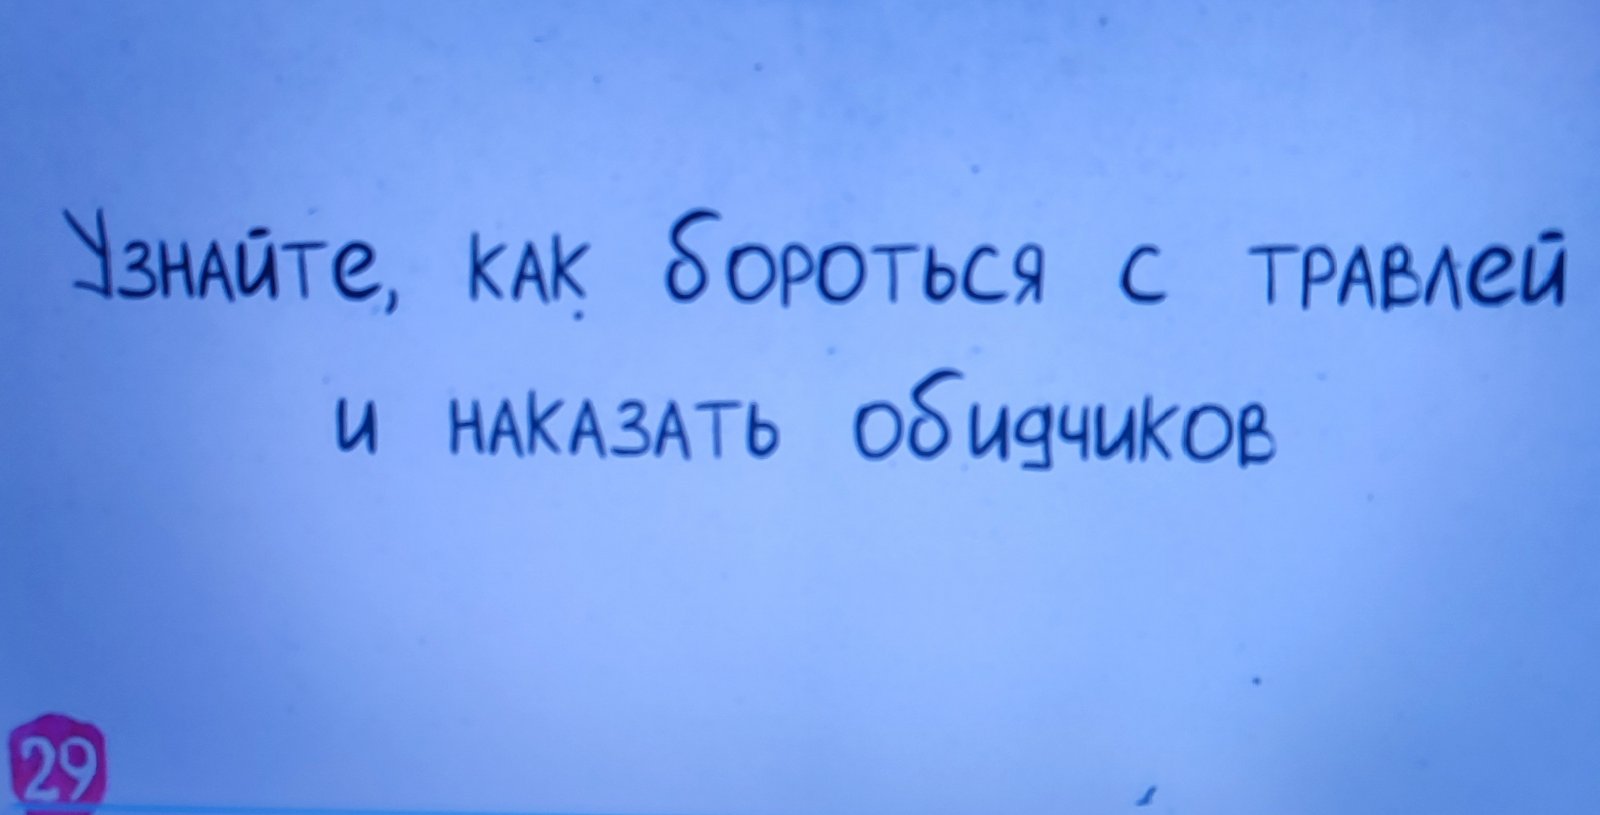 Узнайте, как бороться с травлей
и наказать обидчиков
29